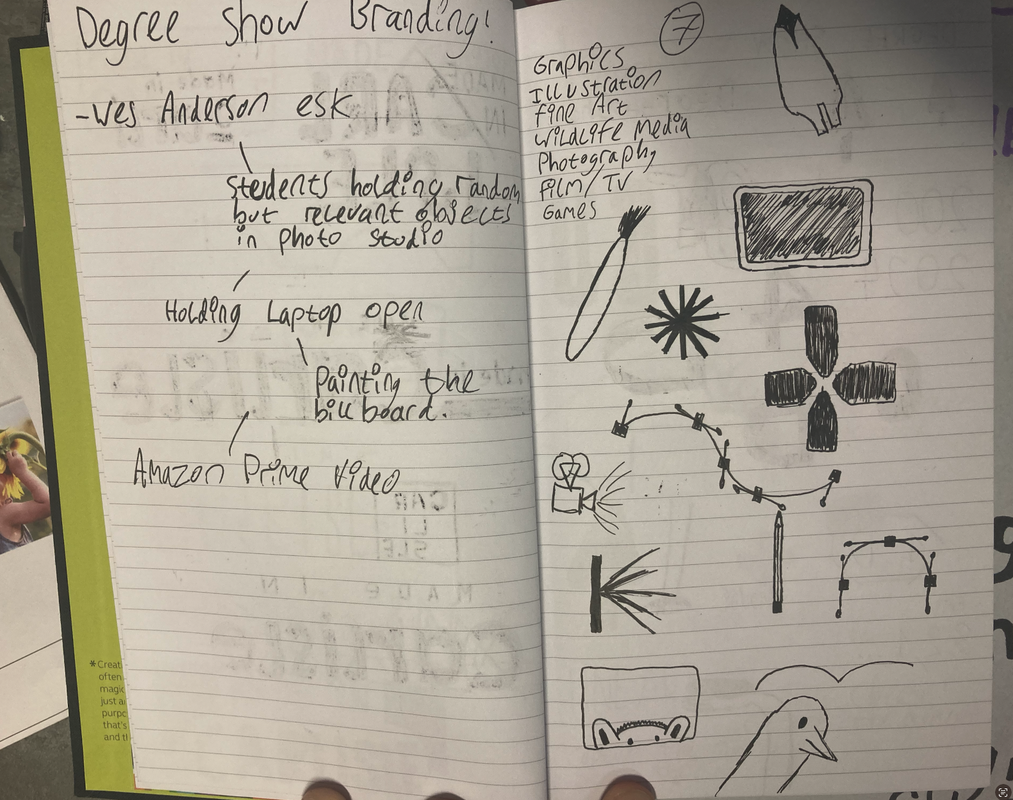 Degree Show Branding!
-Wes Anderson esk
Students holding random
but relevant objects
in photo studio
Holding Laptop open
Painting the
billboard.
Amazon Prime Video
7
Graphics
Illustration
Fine Art
Wildlife Media
Photography
Film/TV
Games
* Creat
often
magic
just a
purpo
that's
and th